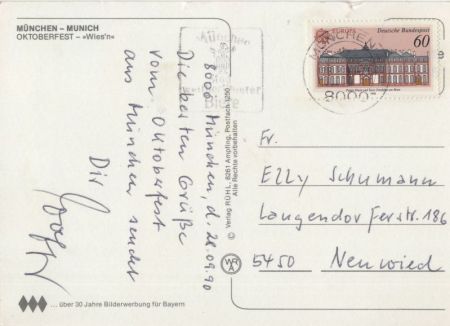 MÜNCHEN – MUNICH
OKTOBERFEST – »Wies'n«
8000 München, d. 28.09.90
Die besten Grüße
vom Oktoberfest
aus München sendet
Dir
© Verlag RÜHL, 8261 Ampfing, Postfach 1250
Alle Rechte vorbehalten
WRA
... über 30 Jahre Bilderwerbung für Bayern
München
Bier
EUROPA
Deutsche Bundespost
60
MÜNCHEN
8000
Fr.
Elly Schumann
Langendorferstr. 186
5450 Neuwied